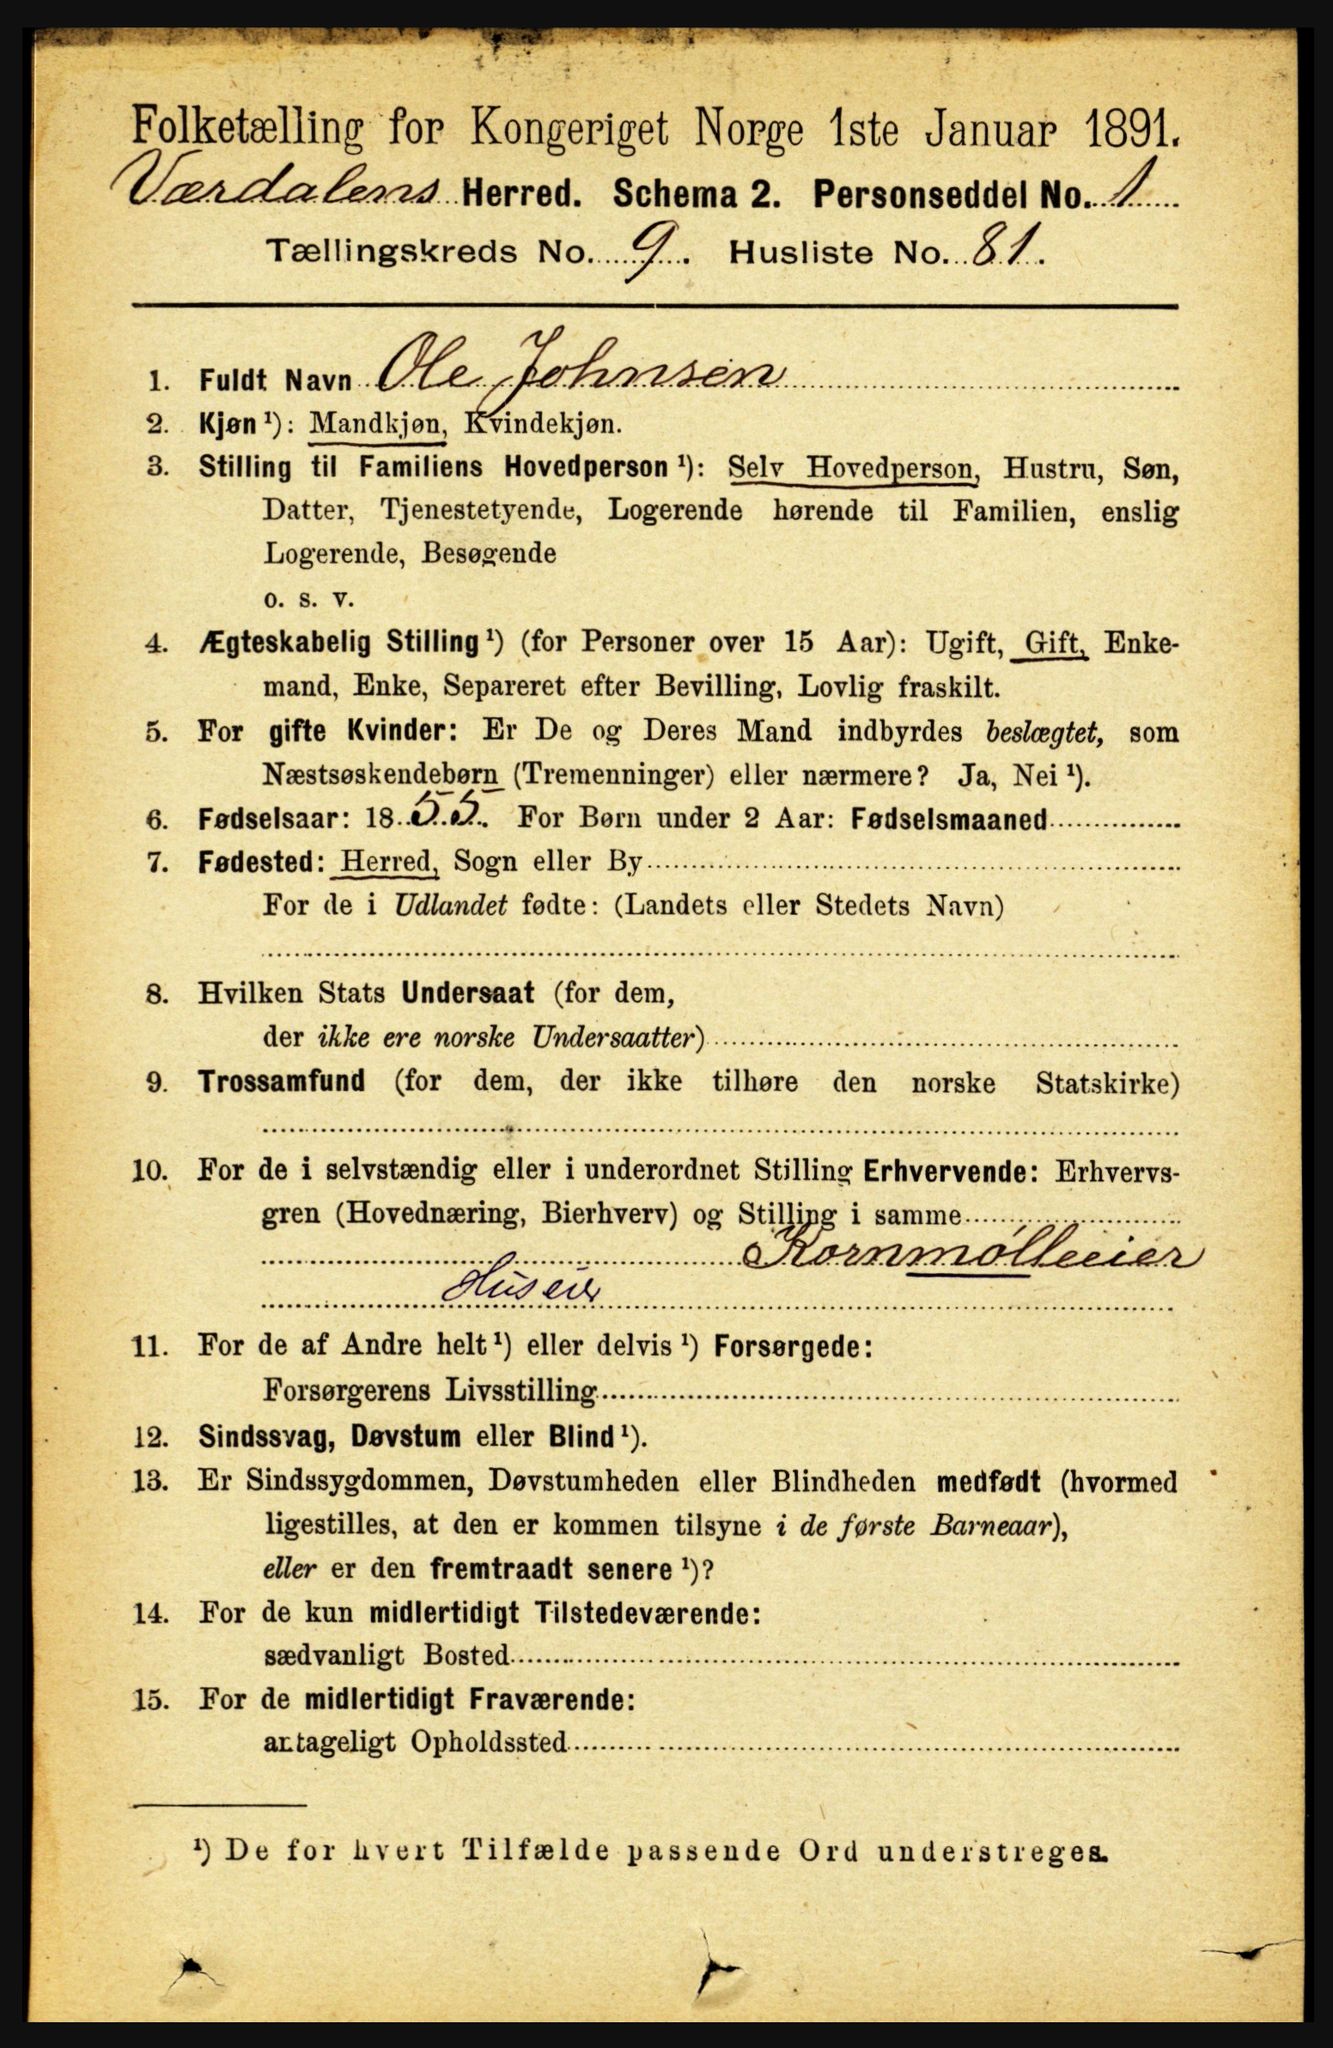 Folketælling for Kongeriget Norge 1ste Januar 1891.
Værdalens Herred. Schema 2. Personseddel No. 1
Tællingskreds No. 9. Husliste No. 81.
1. Fuldt Navn Ole Johnsen
2. Kjøn ¹): Mandkjøn, Kvindekjøn.
3. Stilling til Familiens Hovedperson ¹): Selv Hovedperson, Hustru, Søn,
Datter, Tjenestetyende, Logerende hørende til Familien, enslig
Logerende, Besøgende
o. s. v.
4. Ægteskabelig Stilling ¹) (for Personer over 15 Aar): Ugift, Gift, Enke-
mand, Enke, Separeret efter Bevilling, Lovlig fraskilt.
5. For gifte Kvinder: Er De og Deres Mand indbyrdes beslægtet, som
Næstsøskendebørn (Tremenninger) eller nærmere? Ja, Nei ¹).
6. Fødselsaar: 1855. For Børn under 2 Aar: Fødselsmaaned
7. Fødested: Herred, Sogn eller By
For de i Udlandet fødte: (Landets eller Stedets Navn)
8. Hvilken Stats Undersaat (for dem,
der ikke ere norske Undersaatter)
9. Trossamfund (for dem, der ikke tilhøre den norske Statskirke)
10. For de i selvstændig eller i underordnet Stilling Erhvervende: Erhvervs-
gren (Hovednæring, Bierhverv) og Stilling i samme
Kornmølleeier
Huseier
11. For de af Andre helt ¹) eller delvis ¹) Forsørgede:
Forsørgerens Livsstilling
12. Sindssvag, Døvstum eller Blind ¹).
13. Er Sindssygdommen, Døvstumheden eller Blindheden medfødt (hvormed
ligestilles, at den er kommen tilsyne i de første Barneaar),
eller er den fremtraadt senere ¹)?
14. For de kun midlertidigt Tilstedeværende:
sædvanligt Bosted
15. For de midlertidigt Fraværende:
antageligt Opholdssted
¹) De for hvert Tilfælde passende Ord understreges.